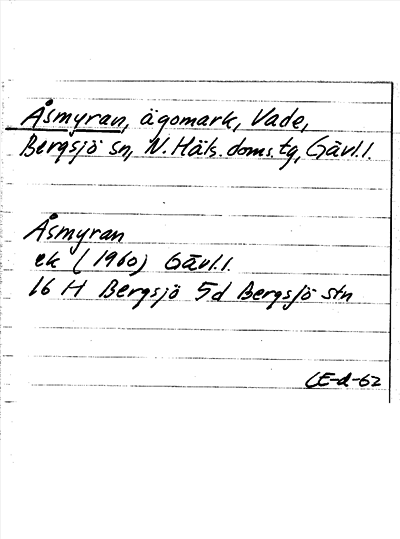 Åsmyran, ägomark, Vade,
Bergsjö sn, N. Häls. doms.tg, Gävl.l.
Åsmyran
ek (1960) Gävl.l.
16 H Bergsjö 5d Bergsjö stn
CE-d-62